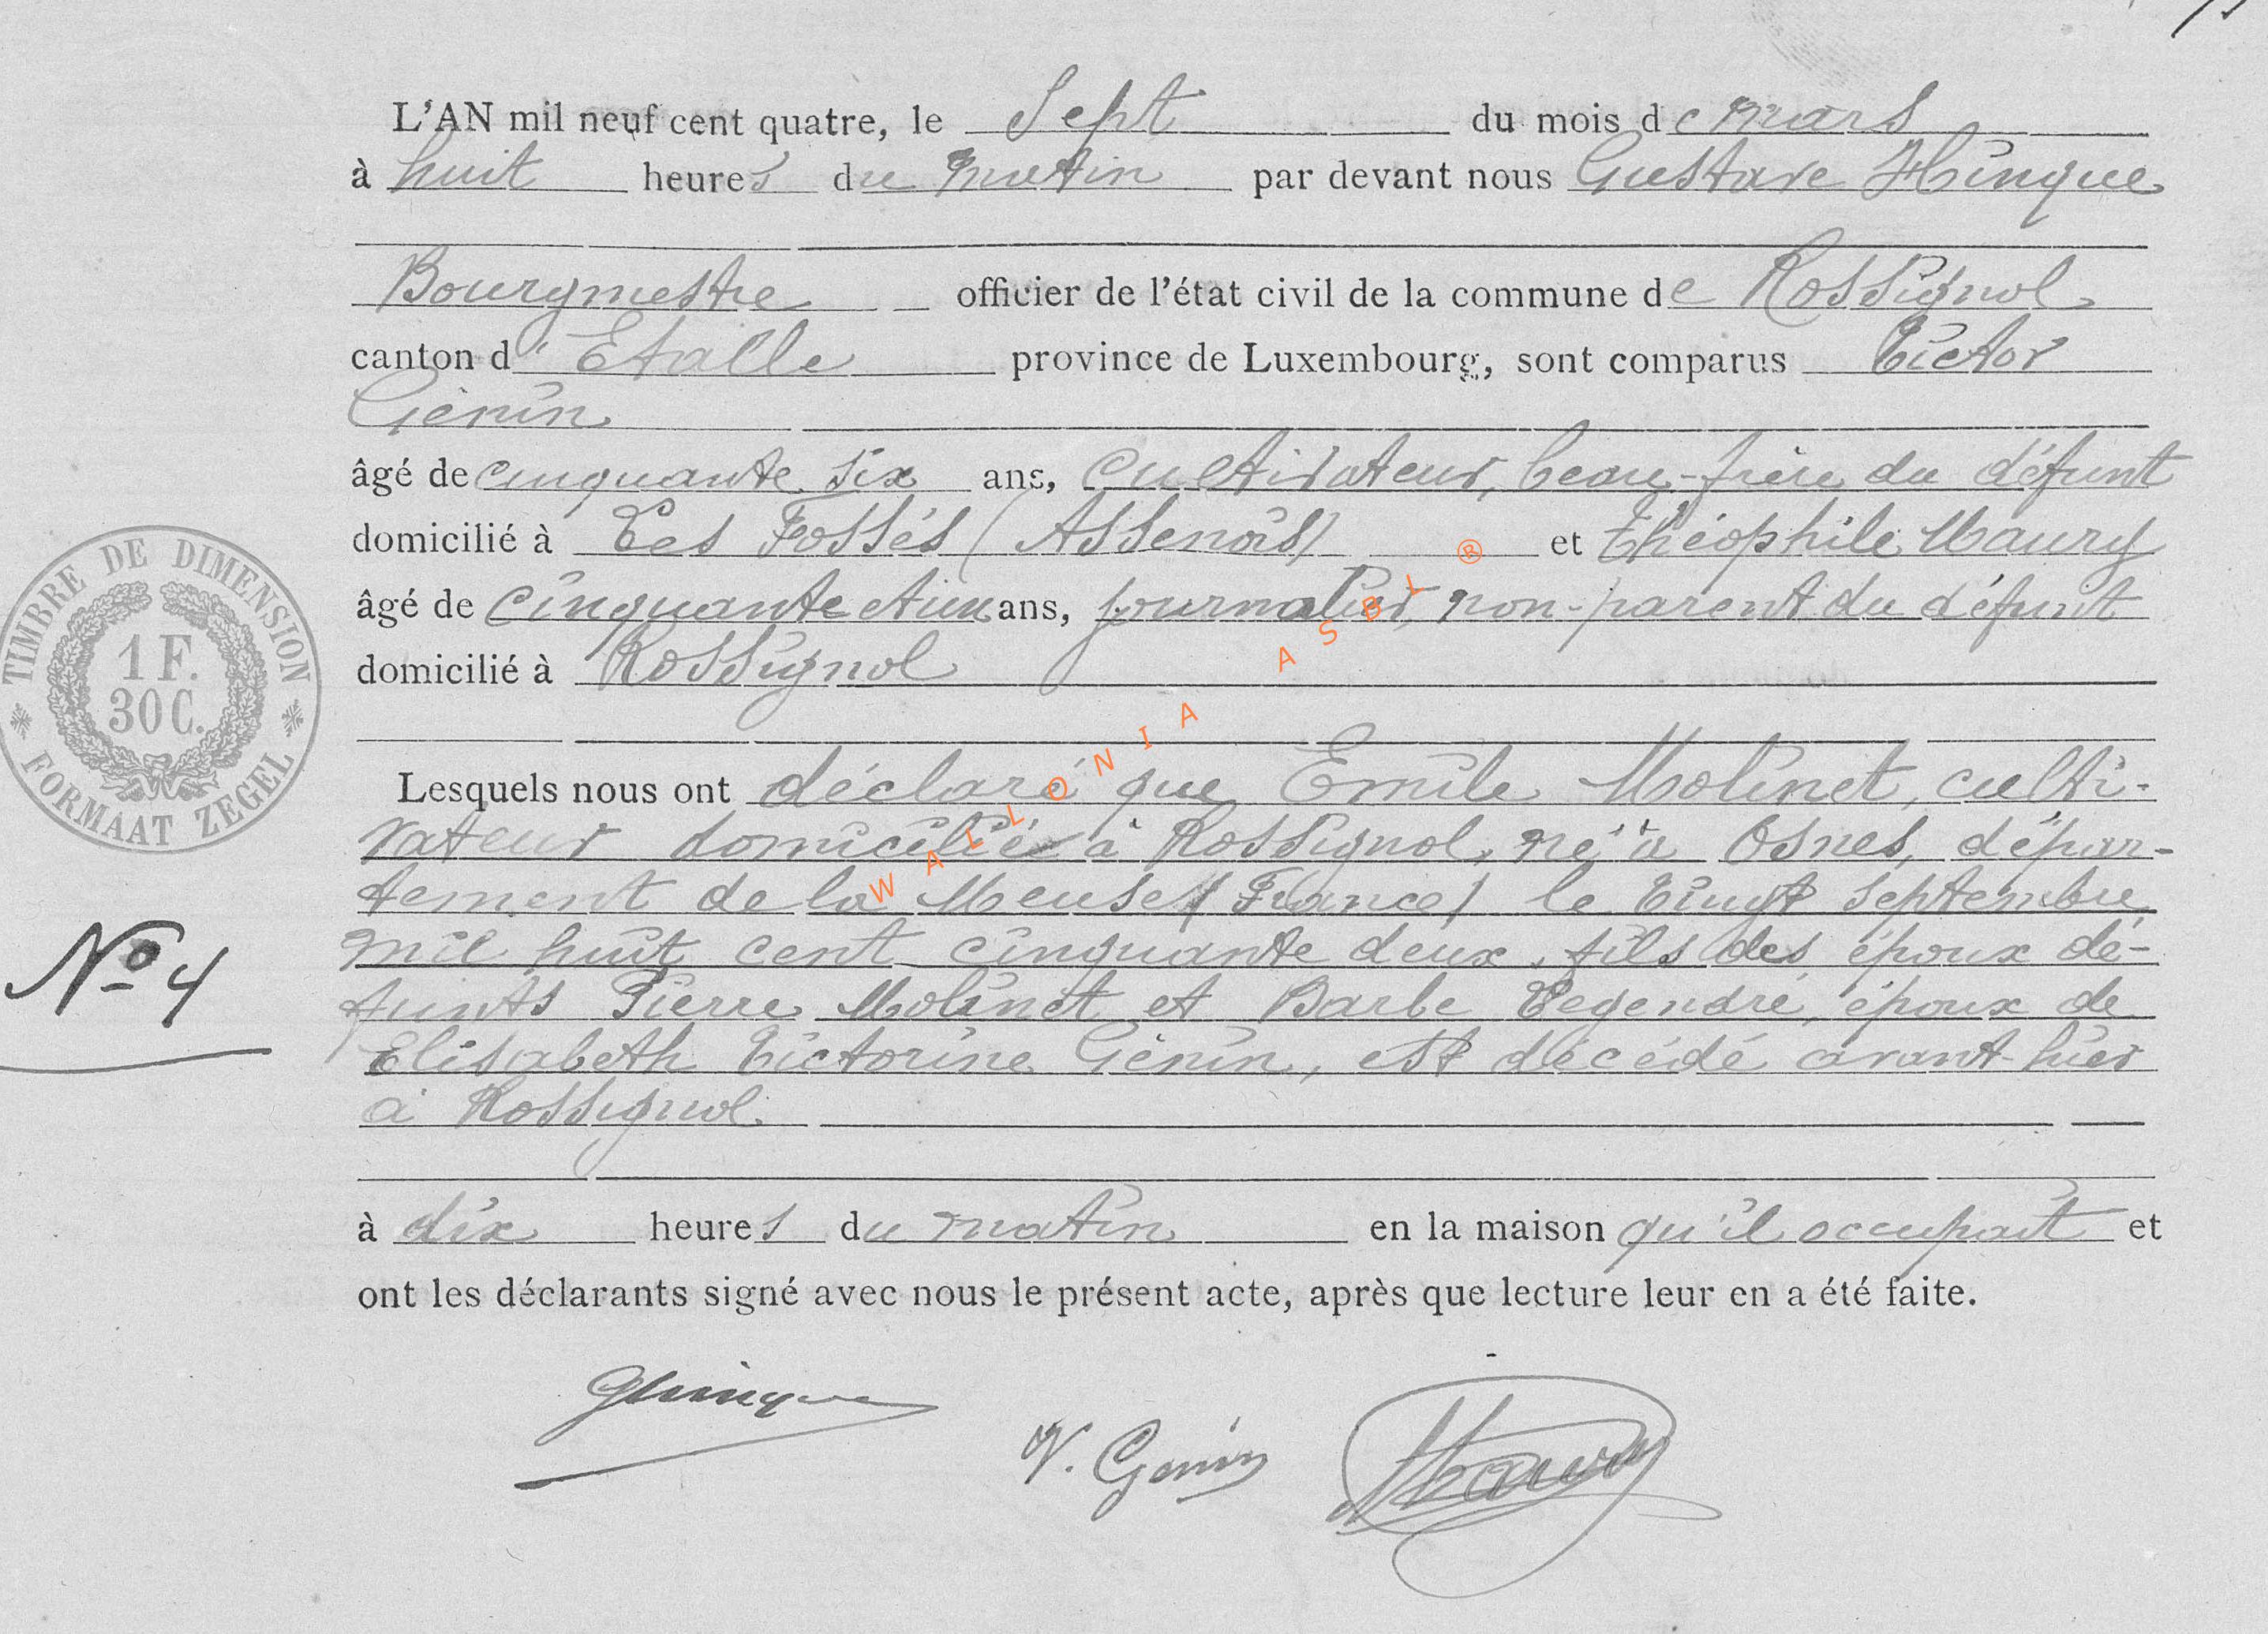 L'AN mil neuf cent quatre, le Sept du mois de mars
à huit heures du matin par devant nous Gustave Hinque
Bourgmestre officier de l'état civil de la commune de Rossignol
canton d'Etalle province de Luxembourg, sont comparus Victor
Génin
âgé de cinquante six ans, cultivateur, beau-frère du défunt
domicilié à Les Fossés (Assenois) et Théophile Maury
âgé de cinquante et un ans, journalier, non-parent du défunt
domicilié à Rossignol
Lesquels nous ont déclaré que Emile Molinet, culti-
vateur domicilié à Rossignol, né à Osnes, dépar-
tement de la Meuse (France) le vingt septembre
mil huit cent cinquante deux, fils des époux dé-
funts Pierre Molinet et Barbe Legendre, époux de
Elisabeth Victorine Génin, est décédé avant-hier
à Rossignol
à dix heures du matin en la maison qu'il occupait et
ont les déclarants signé avec nous le présent acte, après que lecture leur en a été faite.
GHinque
V. Genin
Maury
TIMBRE DE DIMENSION
1 F.
30 C.
FORMAAT ZEGEL
No 4
WALLONIA ASBL ®